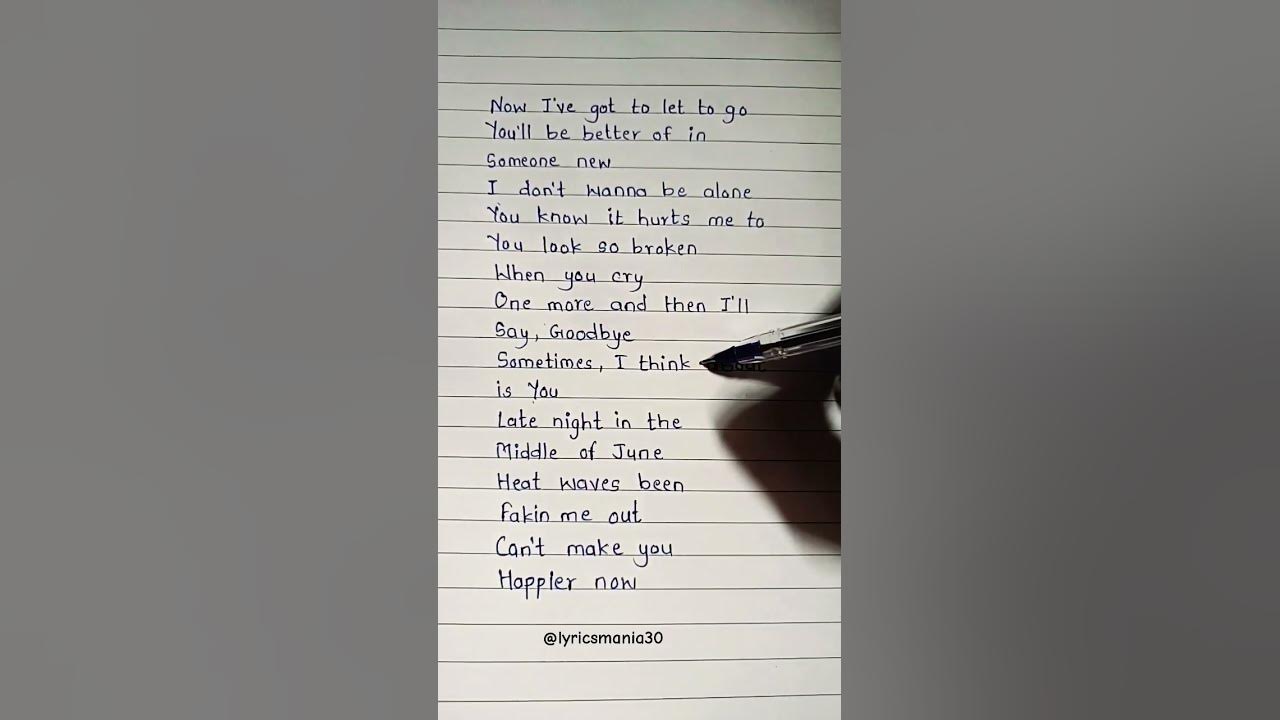 Now I've got to let to go
You'll be better of in
Someone new
I don't wanna be alone
You know it hurts me to
You look so broken
When you cry
One more and then I'll
Say, Goodbye
Sometimes, I think
is You
Late night in the
Middle of June
Heat waves been
Fakin me out
Can't make you
Happler now
@lyricsmania30